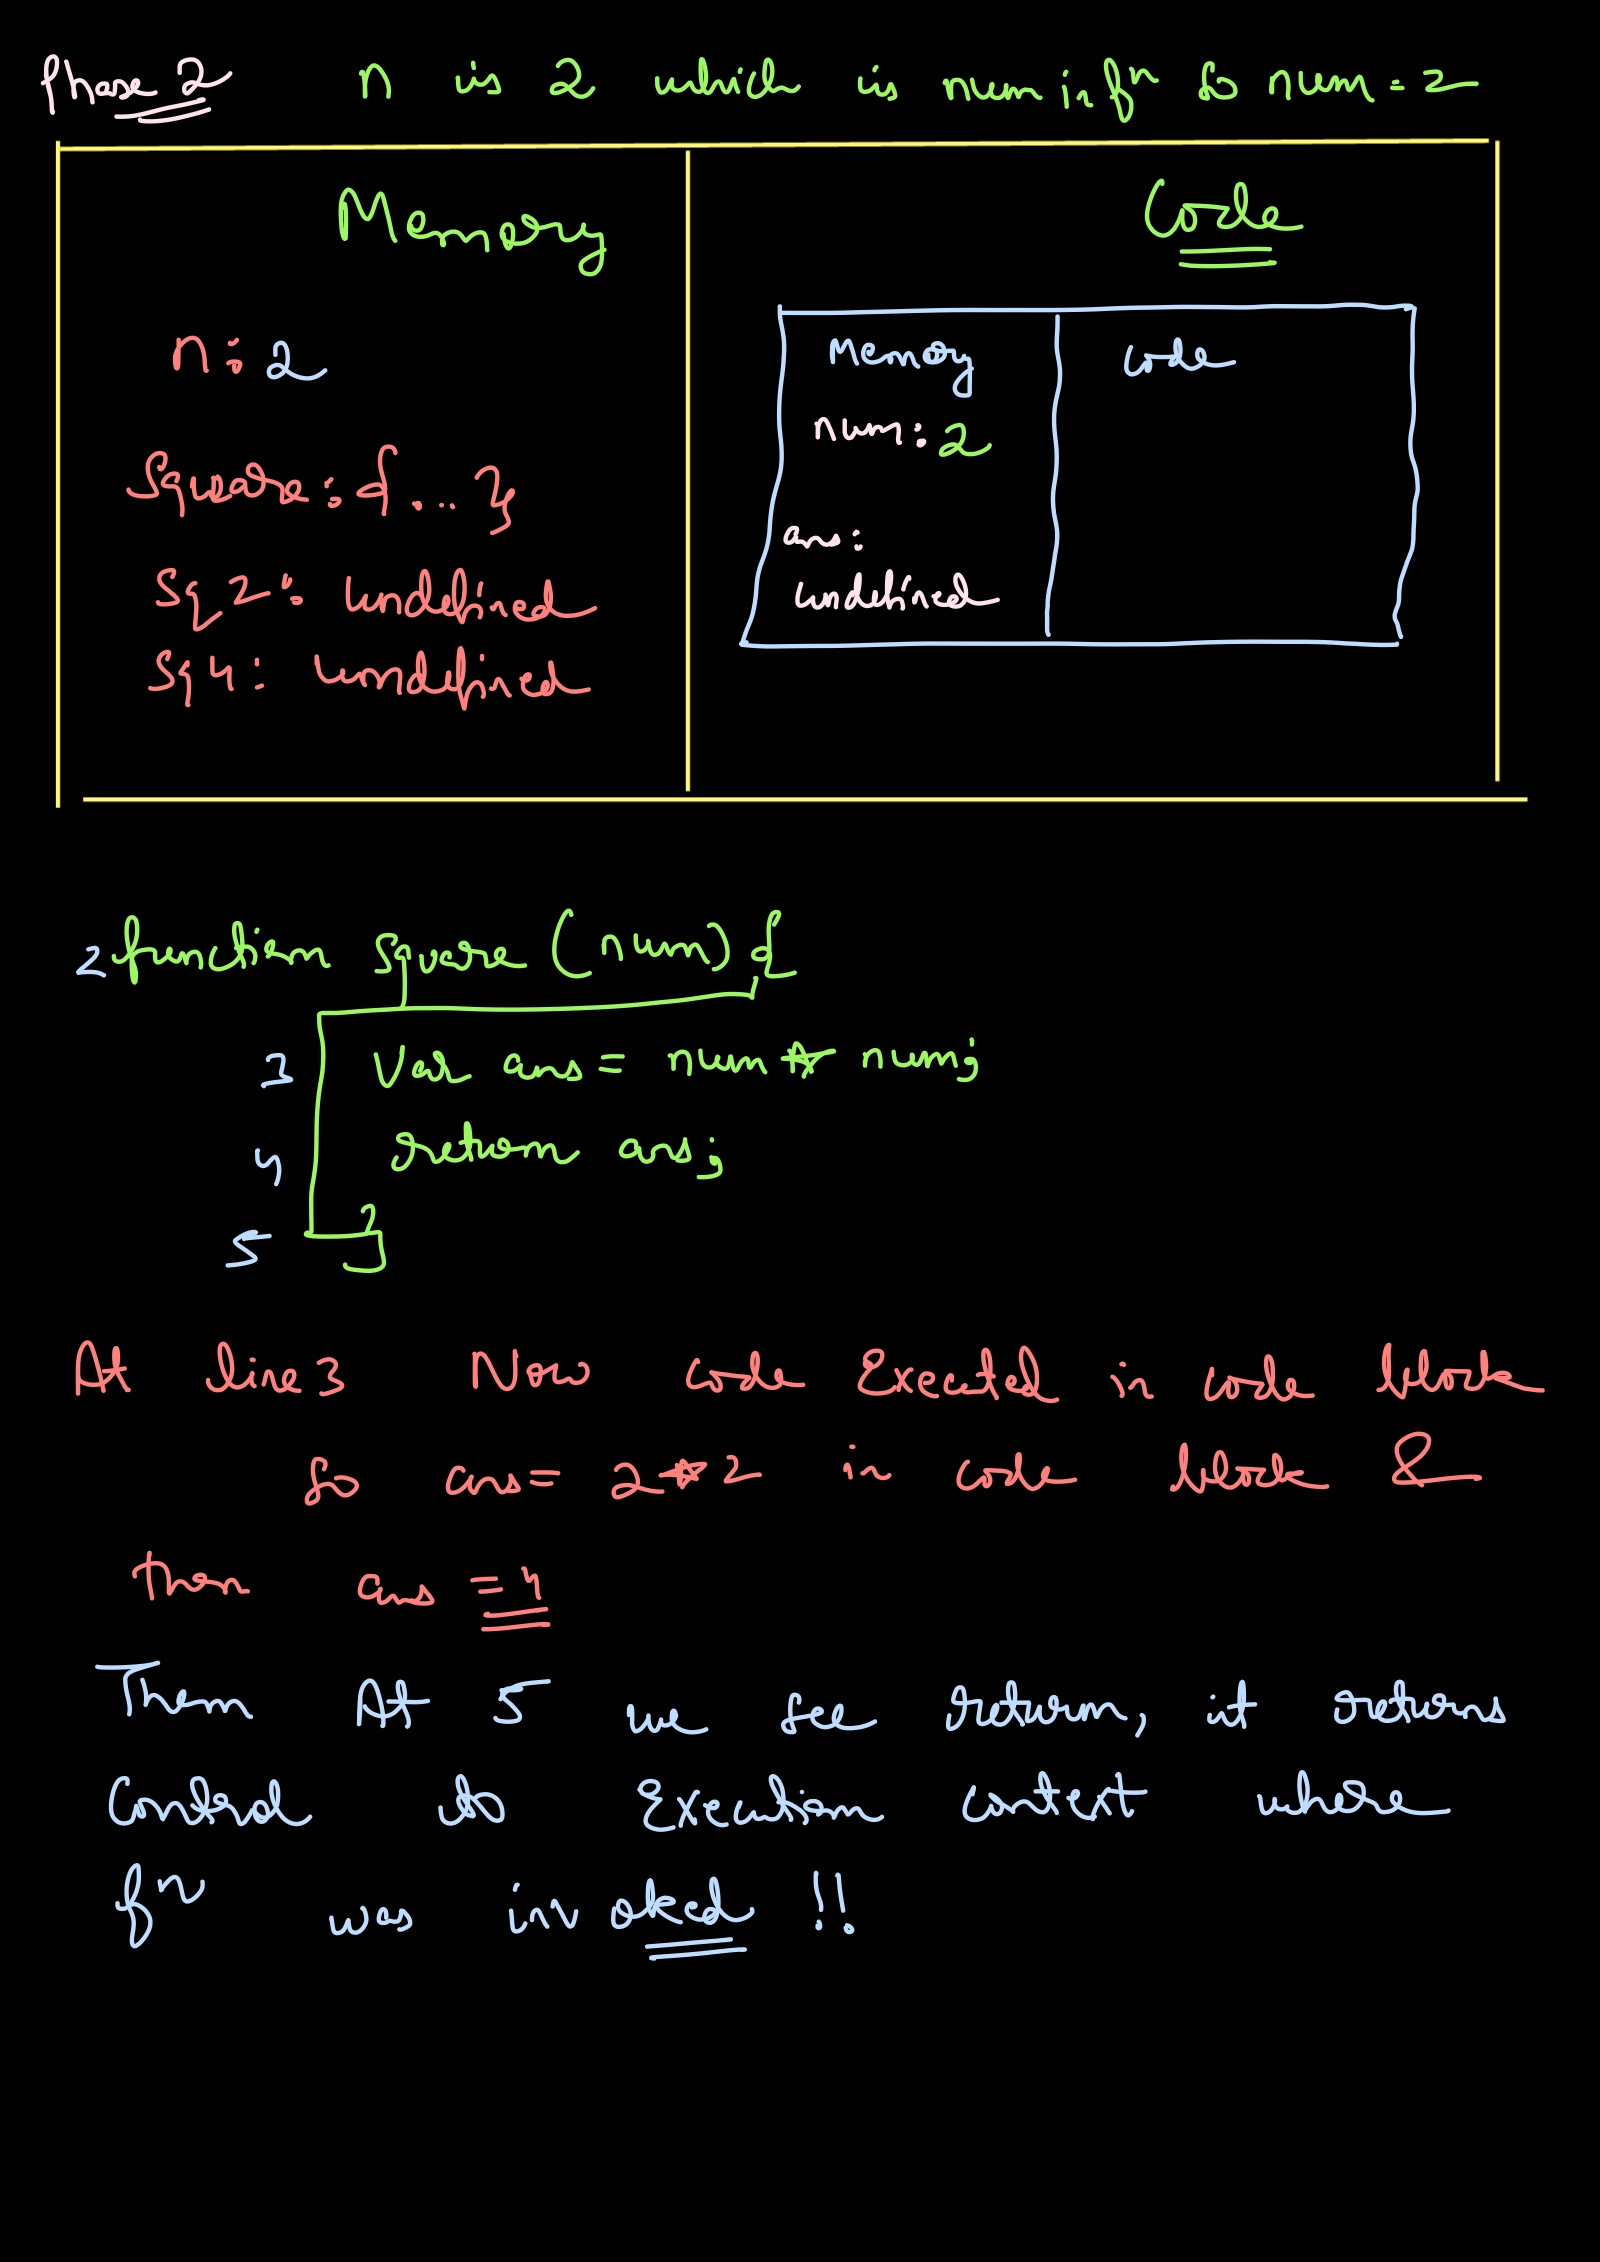 Phase 2 n is 2 which is num in fn so num = 2
Memory
Code
n: 2
Square: {...}
Sq2: undefined
Sq4: undefined
Memory
code
num: 2
ans:
undefined
2 function square (num) {
3 Var ans = num * num;
4 return ans;
5 }
At line 3 Now code Executed in code block
So ans = 2*2 in code block &
then ans = 4
Then At 5 we see return, it returns
Control to Execution context where
fn was invoked !!